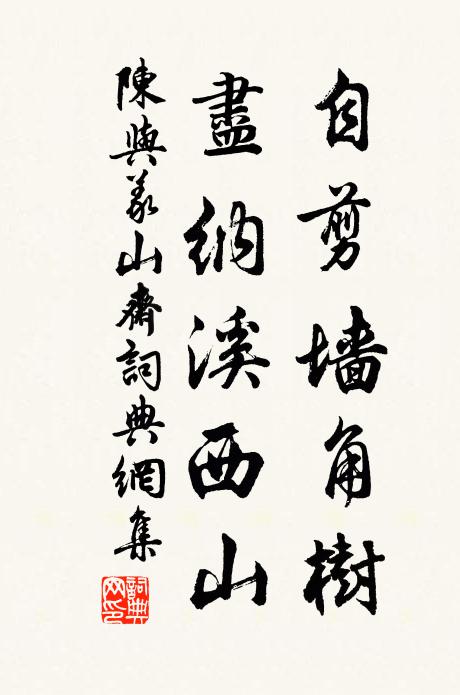 自剪墙角樹
盡納溪西山
陳與義山齋詞典網集
詞典網印